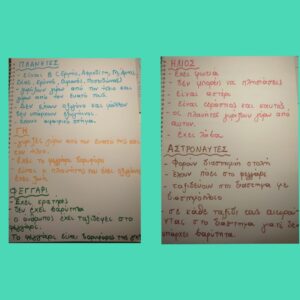 ΠΛΑΝΗΤΕΣ
- Είναι 8 (Ερμής, Αφροδίτη, Γη, Άρης,
Δίας, Κρόνος, Ουρανός, Ποσειδώνας)
- γυρίζουν γύρω από τον ήλιο και
γύρω από τον εαυτό τους
- Δεν έχουν οξυγόνο και
υπάρχουν
- έχουν
ΓΗ
- γυρίζει γύρω από τον εαυτό της και
τον ήλιο.
- Έχει το φεγγάρι δορυφόρο
- είναι ο πλανήτης που έχει οξυγόνο
έχει ζωή
ΦΕΓΓΑΡΙ
- Έχει κρατήρες
- δεν έχει βαρύτητα
ο άνθρωπος έχει ταξιδέψει στο
φεγγάρι.
το φεγγάρι είναι δορυφόρος της γης
ΗΛΙΟΣ
- Έχει φωτιά
- Δεν μπορείς να πλησιάσεις
- Είναι αστέρι
- Είναι τεράστιος και καυτός
- οι πλανήτες γυρίζουν γύρω από
αυτόν.
- έχει
ΑΣΤΡΟΝΑΥΤΕΣ
- Φοράνε διαστημική στολή
- έχουν πάει στο φεγγάρι
- ταξιδεύουν στο διάστημα με
διαστημόπλοιο
σε κάθε ταξίδι τους αιωρού
νται στο διάστημα γιατί δεν
υπάρχει βαρύτητα.